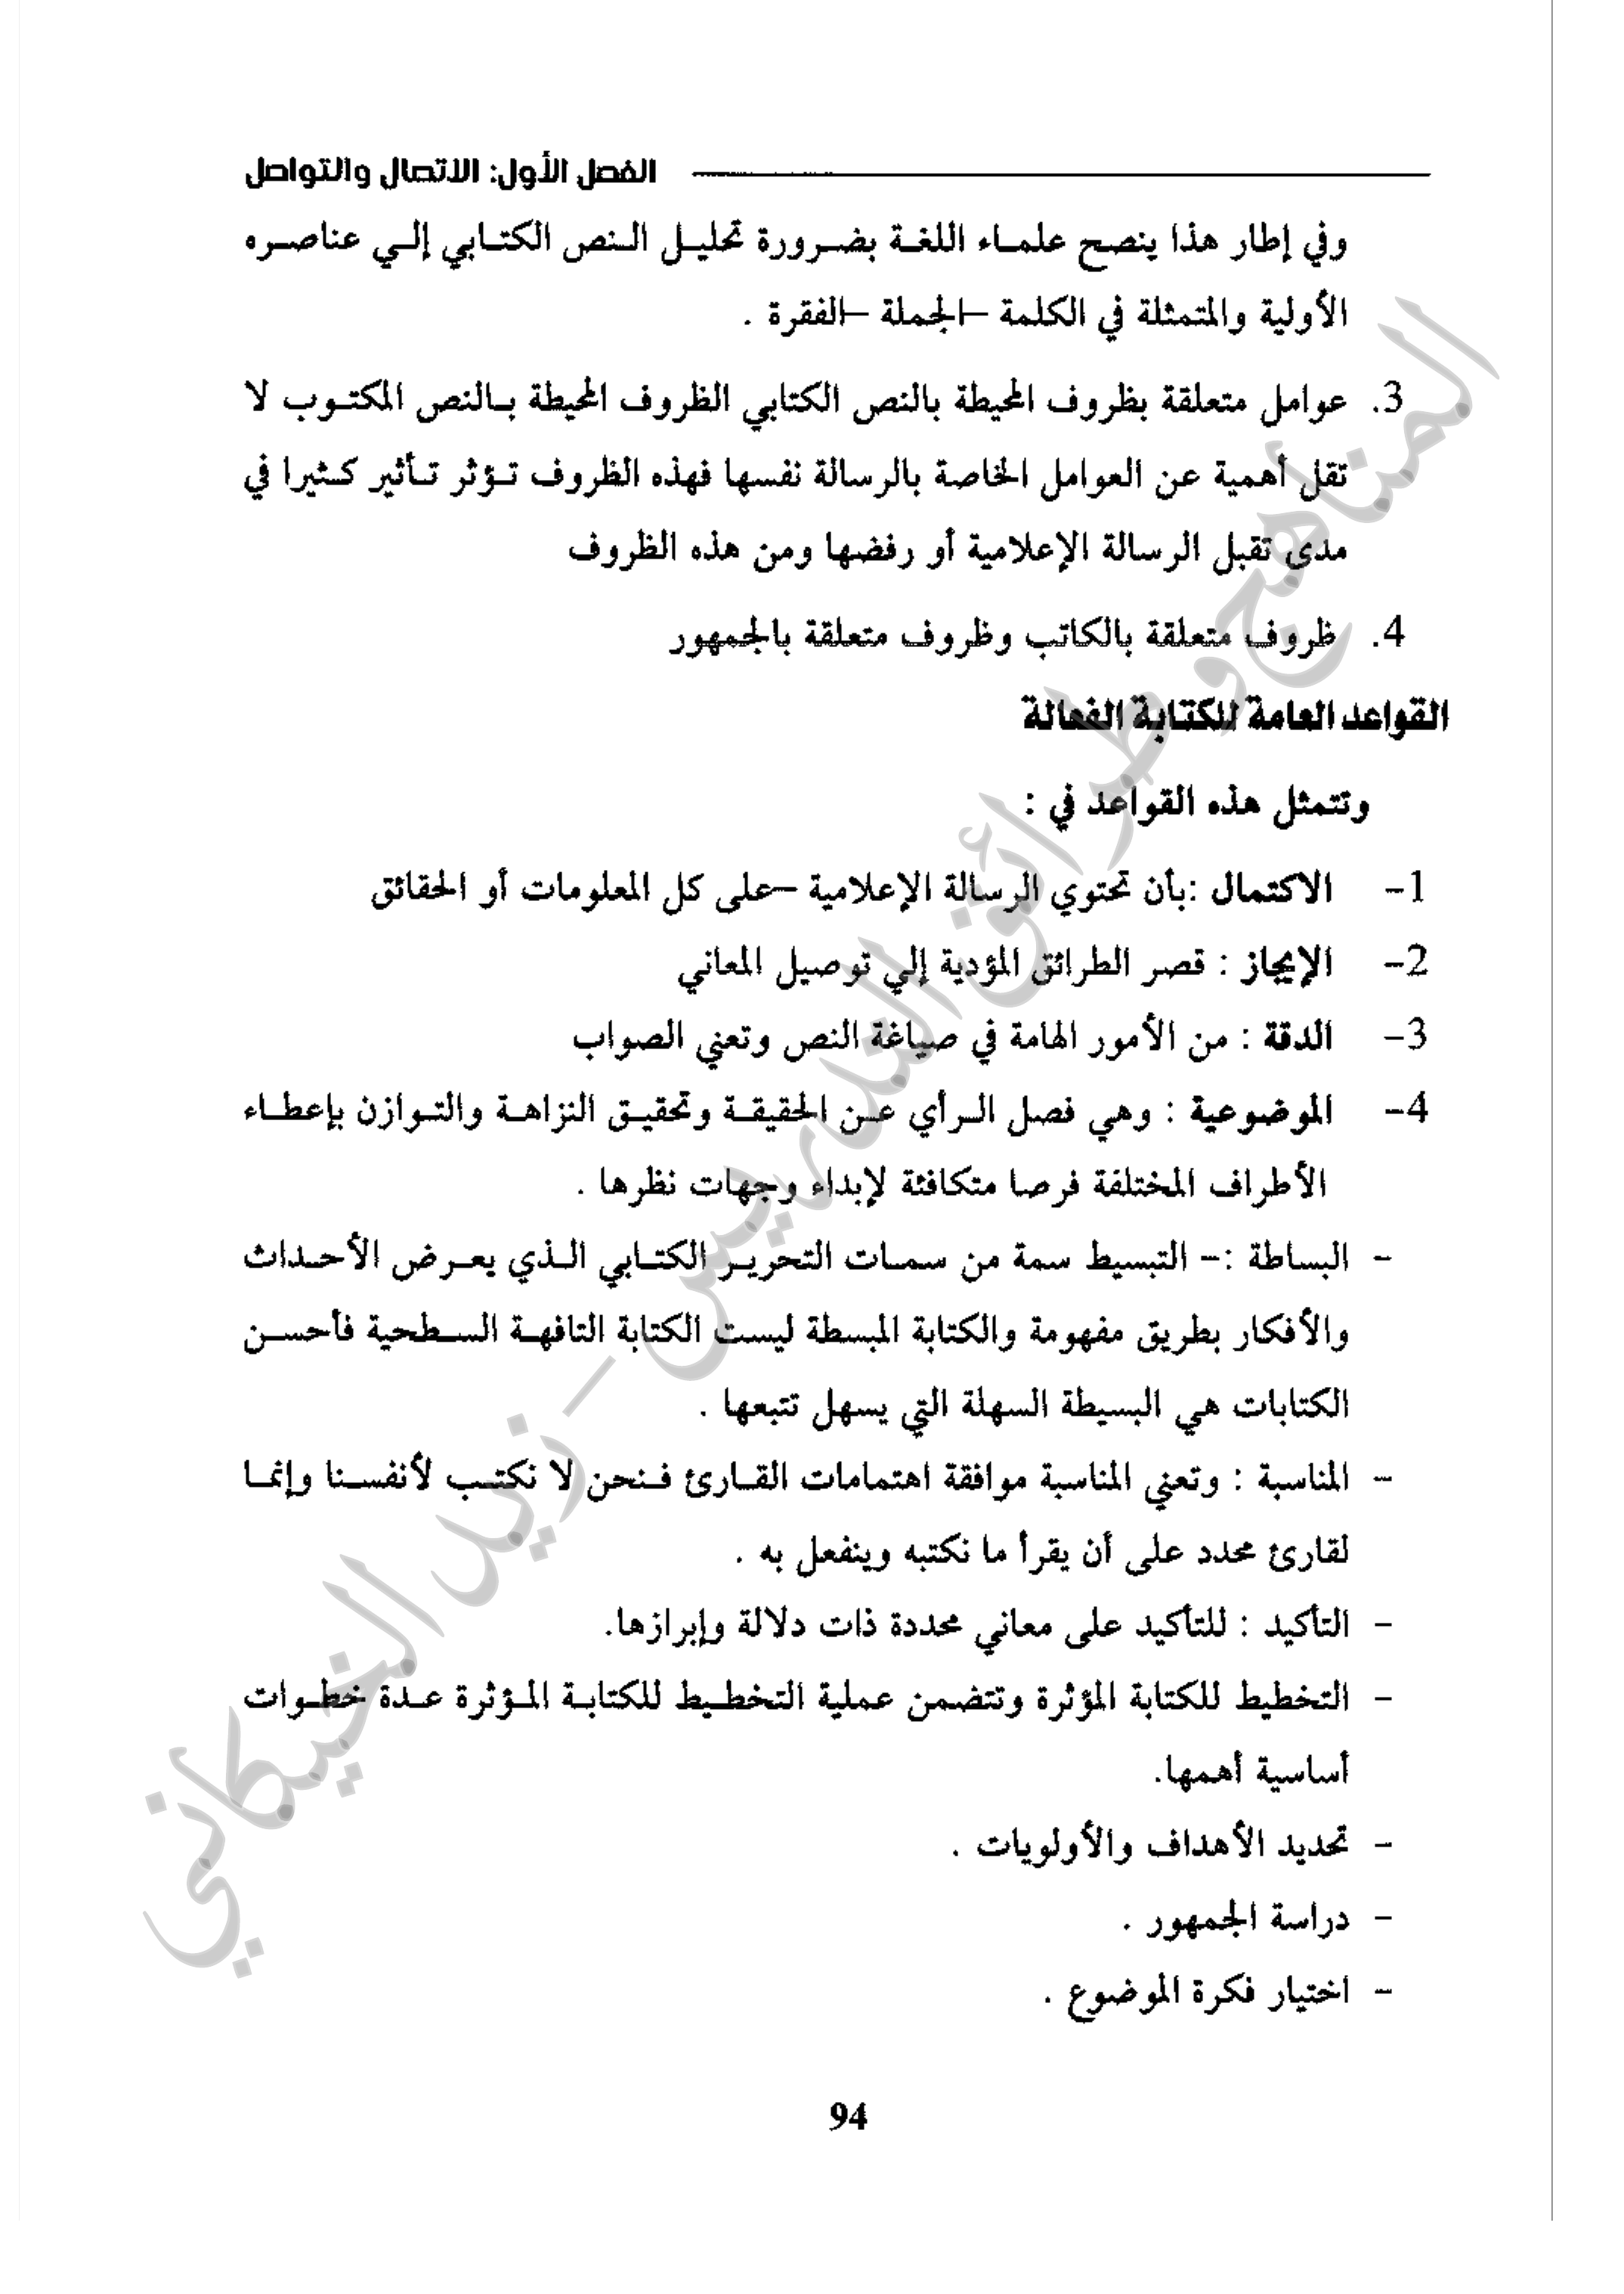 الفصل الأول: الاتصال والتواصل
وفي إطار هذا ينصح علماء اللغة بضرورة تحليل النص الكتابي إلي عناصره
الأولية والمتمثلة في الكلمة –الجملة –الفقرة .
3. عوامل متعلقة بظروف المحيطة بالنص الكتابي الظروف المحيطة بالنص المكتوب لا
تقل أهمية عن العوامل الخاصة بالرسالة نفسها فهذه الظروف تؤثر تأثير كثيرا في
مدى تقبل الرسالة الإعلامية أو رفضها ومن هذه الظروف
4. ظروف متعلقة بالكاتب وظروف متعلقة بالجمهور
القواعد العامة للكتابة الفعالة
وتتمثل هذه القواعد في :
1- الاكتمال :بأن تحتوي الرسالة الإعلامية –على كل المعلومات أو الحقائق
2- الإيجاز : قصر الطرائق المؤدية إلي توصيل المعاني
3- الدقة : من الأمور الهامة في صياغة النص وتعني الصواب
4- الموضوعية : وهي فصل الرأي عن الحقيقة وتحقيق النزاهة والتوازن بإعطاء
الأطراف المختلفة فرصا متكافئة لإبداء وجهات نظرها .
- البساطة :- التبسيط سمة من سمات التحرير الكتابي الذي يعرض الأحداث
والأفكار بطريق مفهومة والكتابة المبسطة ليست الكتابة التافهة السطحية فأحسن
الكتابات هي البسيطة السهلة التي يسهل تتبعها .
- المناسبة : وتعني المناسبة موافقة اهتمامات القارئ فنحن لا نكتب لأنفسنا وإنما
لقارئ محدد على أن يقرأ ما نكتبه وينفعل به .
- التأكيد : للتأكيد على معاني محددة ذات دلالة وإبرازها.
- التخطيط للكتابة المؤثرة وتتضمن عملية التخطيط للكتابة المؤثرة عدة خطوات
أساسية أهمها.
- تحديد الأهداف والأولويات .
- دراسة الجمهور .
- اختيار فكرة الموضوع .
94
المناهج وطرائق التدريس – زيد الخيكاني